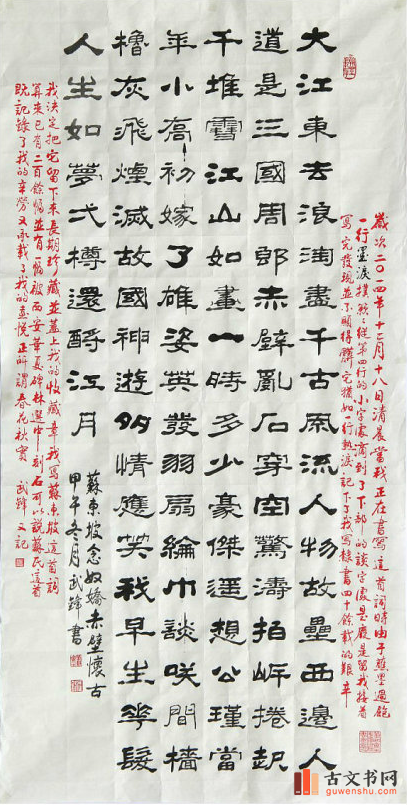 大江東去浪淘盡千古風流人物故壘西邊人
道是三國周郎赤壁亂石穿空驚濤拍岸捲起
千堆雪江山如畫一時多少豪傑遥想公瑾當
年小喬初嫁了雄姿英發羽扇綸巾談咲間檣
櫓灰飛煙滅故國神遊多情應笑我早生華髮
人生如夢弌樽還酹江月
蘇東坡念奴嬌赤壁懷古
甲午冬月武鋒書
歲次二〇一四年十二月十八日清晨當我正在書寫這首詞時由于蘸墨過飽
一行墨淚撲然從第四行的小字處滴到了下部的談字處是廢是留我接着
寫完發現並不顯得髒它猶如一行熱淚記下了我寫隸書四十餘載的艱辛
我決定把它留下來長期珍藏並蓋上我的收藏章我寫蘇東坡這首詞
算來已有二百餘幅並有一幅被西安華夏碑林選中刻石可以說蘇氏這首
既記錄了我的辛勞又承載了我的喜悅正所謂春花秋實 武鋒又記
古文书网
guwenshu.com